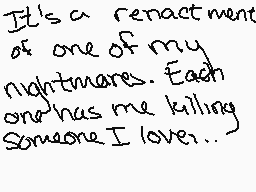 It's a renactment
of one of my
nightmares. Each
one has me killing
someone I love...